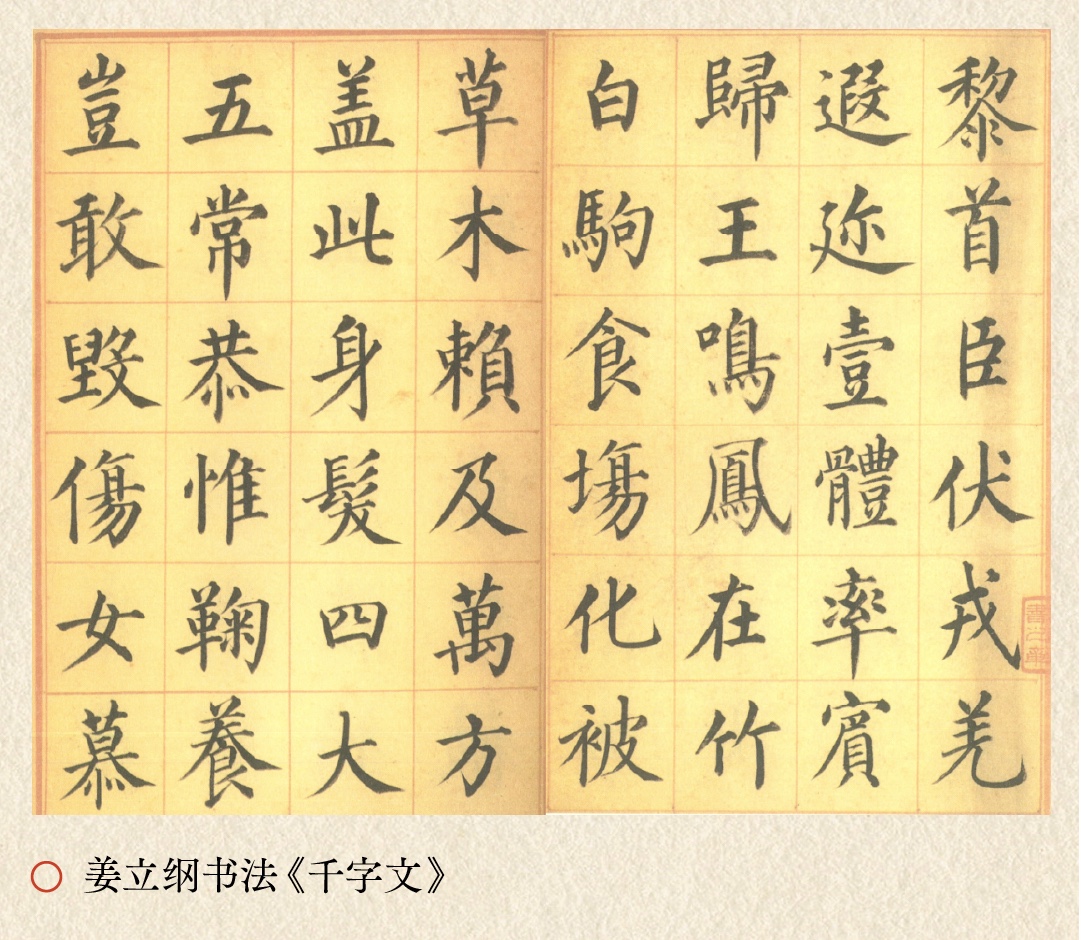 黎首臣伏戎羌
遐迩壹體率賓
歸王鳴鳳在竹
白駒食塲化被
草木賴及萬方
盖此身髮四大
五常恭惟鞠養
豈敢毀傷女慕
姜立纲书法《千字文》